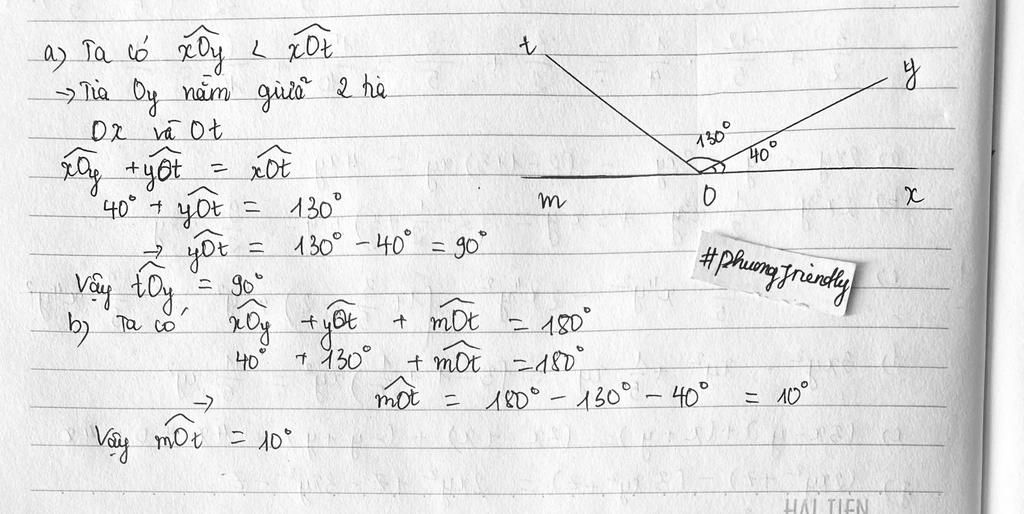 a) Ta có xOy < xOt
→ Tia Oy nằm giữa 2 tia
Ox và Ot
xOy + yOt = xOt
40° + yOt = 130°
→ yOt = 130° - 40° = 90°
Vậy tOy = 90°
b) Ta có xOy + yOt + mOt = 180°
40° + 130° + mOt = 180°
→ mOt = 180° - 130° - 40° = 10°
Vậy mOt = 10°
t
y
130°
40°
m O x
#phuongfriendly
HẢI TIẾN